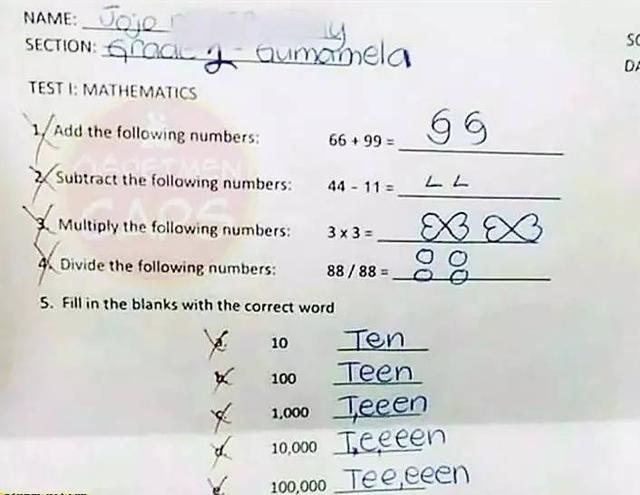 NAME: Jojo
SECTION: Grade 2 - Gumamela
TEST I: MATHEMATICS
1. Add the following numbers: 66 + 99 =
2. Subtract the following numbers: 44 - 11 = L L
3. Multiply the following numbers: 3 x 3 = 
4. Divide the following numbers: 88 / 88 = 
5. Fill in the blanks with the correct word
a. 10 Ten
b. 100 Teen
c. 1,000 T,eeen
d. 10,000 T,e,eeen
e. 100,000 Tee,eeen